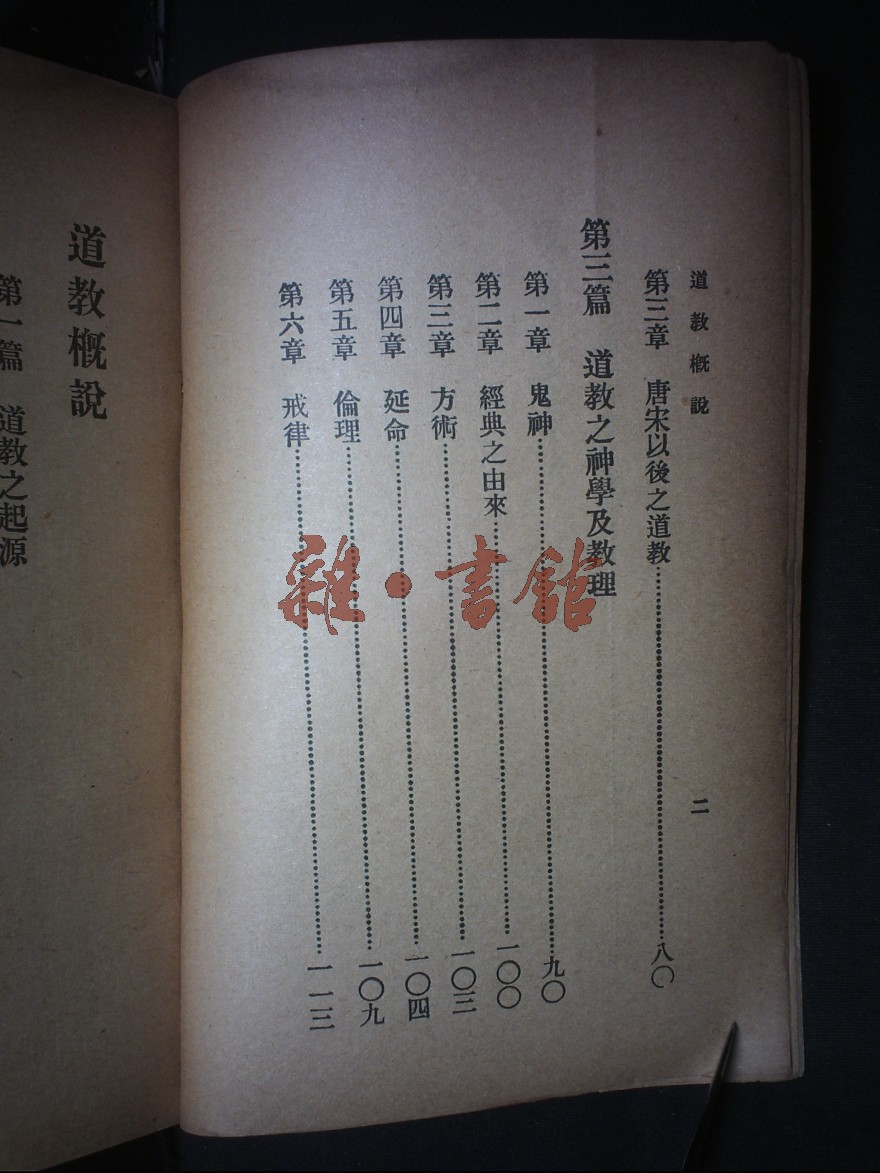 道教概說
二
第三章 唐宋以後之道教……八〇
第三篇 道教之神學及教理
第一章 鬼神……九〇
第二章 經典之由來……一〇〇
第三章 方術……一〇三
第四章 延命……一〇四
第五章 倫理……一〇九
第六章 戒律……一一三
雜·書館
道教概說
第一篇 道教之起源